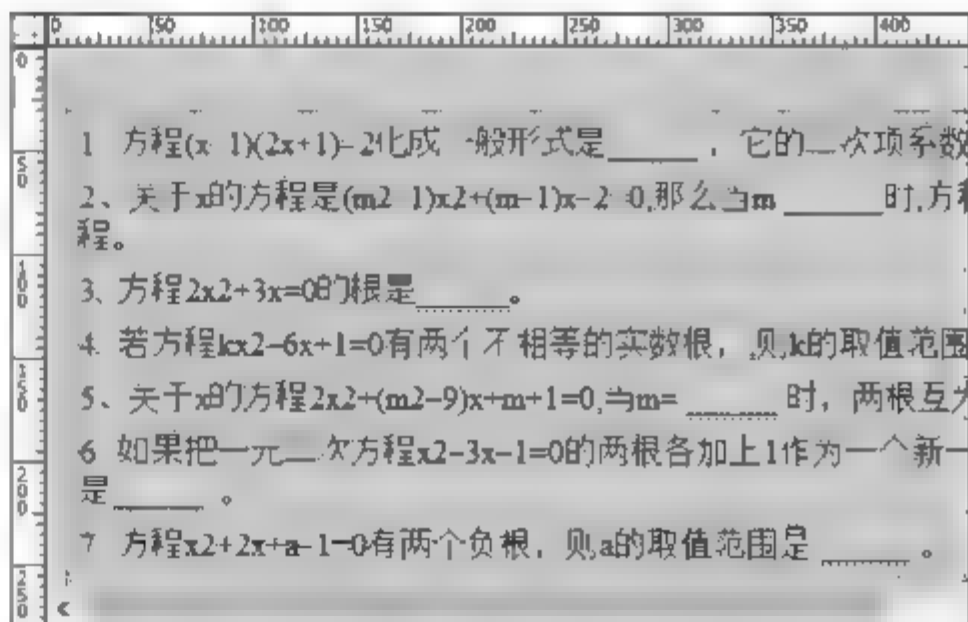 0 50 100 150 200 250 300 350 400
0
50
100
150
200
250
1 方程(x 1)(2x+1)-2化成 一般形式是______，它的二次项系数
2、关于x的方程是(m2 1)x2+(m-1)x-2=0,那么当m ______时,方程
程。
3、方程2x2+3x=0的根是______。
4. 若方程kx2-6x+1=0有两个不相等的实数根，则,k的取值范围
5、关于x的方程2x2+(m2-9)x+m+1=0,当m= ______ 时，两根互为
6 如果把一元二次方程x2-3x-1=0的两根各加上1作为一个新一
是______ 。
7 方程x2+2x+a-1=0有两个负根，则,a的取值范围是 ______ 。